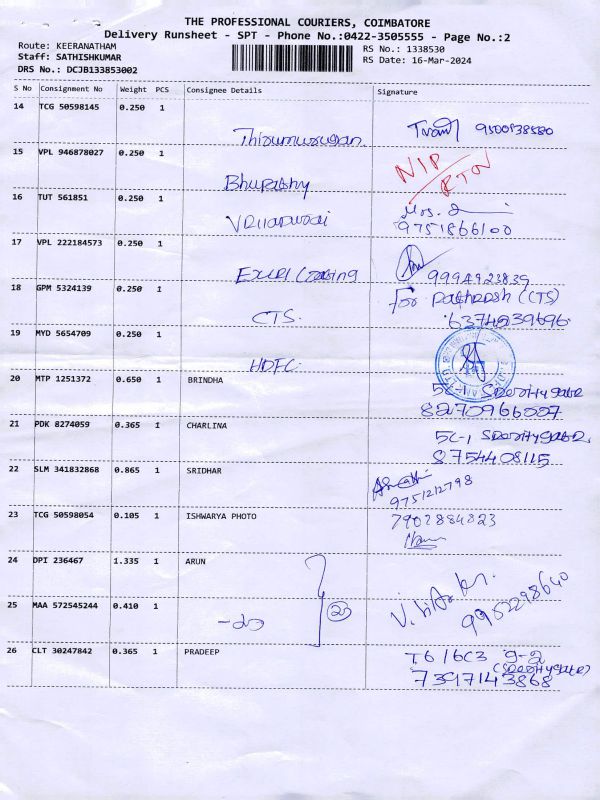 THE PROFESSIONAL COURIERS, COIMBATORE
Delivery Runsheet - SPT - Phone No.:0422-3505555 - Page No.:2
Route: KEERANATHAM
RS No.: 1338530
Staff: SATHISHKUMAR
RS Date: 16-Mar-2024
DRS No.: DCJB133853002
S No Consignment No Weight PCS Consignee Details Signature
14 TCG 50598145 0.250 1
Thirumurugan 9500538580
15 VPL 946878027 0.250 1
NIP
RTN
Bhupathy
16 TUT 561851 0.250 1
Mrs.
9751866100
17 VPL 222184573 0.250 1
9994923839
18 GPM 5324139 0.250 1
for (CTS)
CTS. 6374239696
19 MYD 5654709 0.250 1
HDFC
20 MTP 1251372 0.650 1 BRINDHA
5C-1
8270966007
21 PDK 8274059 0.365 1 CHARLINA
5C-1
8754408115
22 SLM 341832868 0.865 1 SRIDHAR
9751212798
23 TCG 50598054 0.105 1 ISHWARYA PHOTO
7902884823
24 DPI 236467 1.335 1 ARUN
9952298640
25 MAA 572545244 0.410 1
26 CLT 30247842 0.365 1 PRADEEP
7397143868